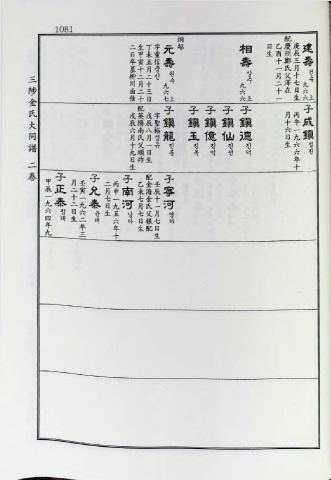 1081
三陟金氏大同譜 二卷
建壽 건수 九六六上
庚辰三月十七日生
配慶州鄭氏父澤在
乙酉十一月二十一
日生
相壽 상수 九六六上
元壽 원수 九六七上
字重信
丁未五月二十三日
生甲寅十二月二十
二日卒墓柳川面佳
子成鎭 성진
丙午一九六六年十
月十六日生
子鎭德 진덕
子鎭仙 진선
子鎭億 진억
子鎭玉 진옥
子鎭龍 진용
戊辰八月二日生
戊辰六月十九日生
子寧河 영하
壬辰十一月七日生
配金海金氏父
乙未七月七日生
子南河 남하
丙申一九五六年十
二月七日生
子允泰 윤태
壬寅一九六二年三
月二十二日生
子正泰 정태
甲辰一九六四年九